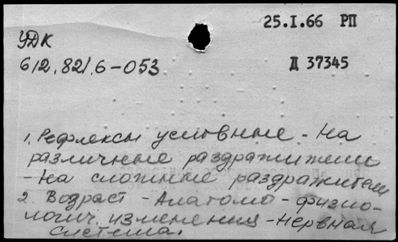 25.I.66 РП
УДК
612.821.6-053
Д 37345
1. Рефлексы условные - На
различные раздражители
- На сложные раздражители
2. Возраст - Анатомо - физио-
логич. изменения - Нервная
система.